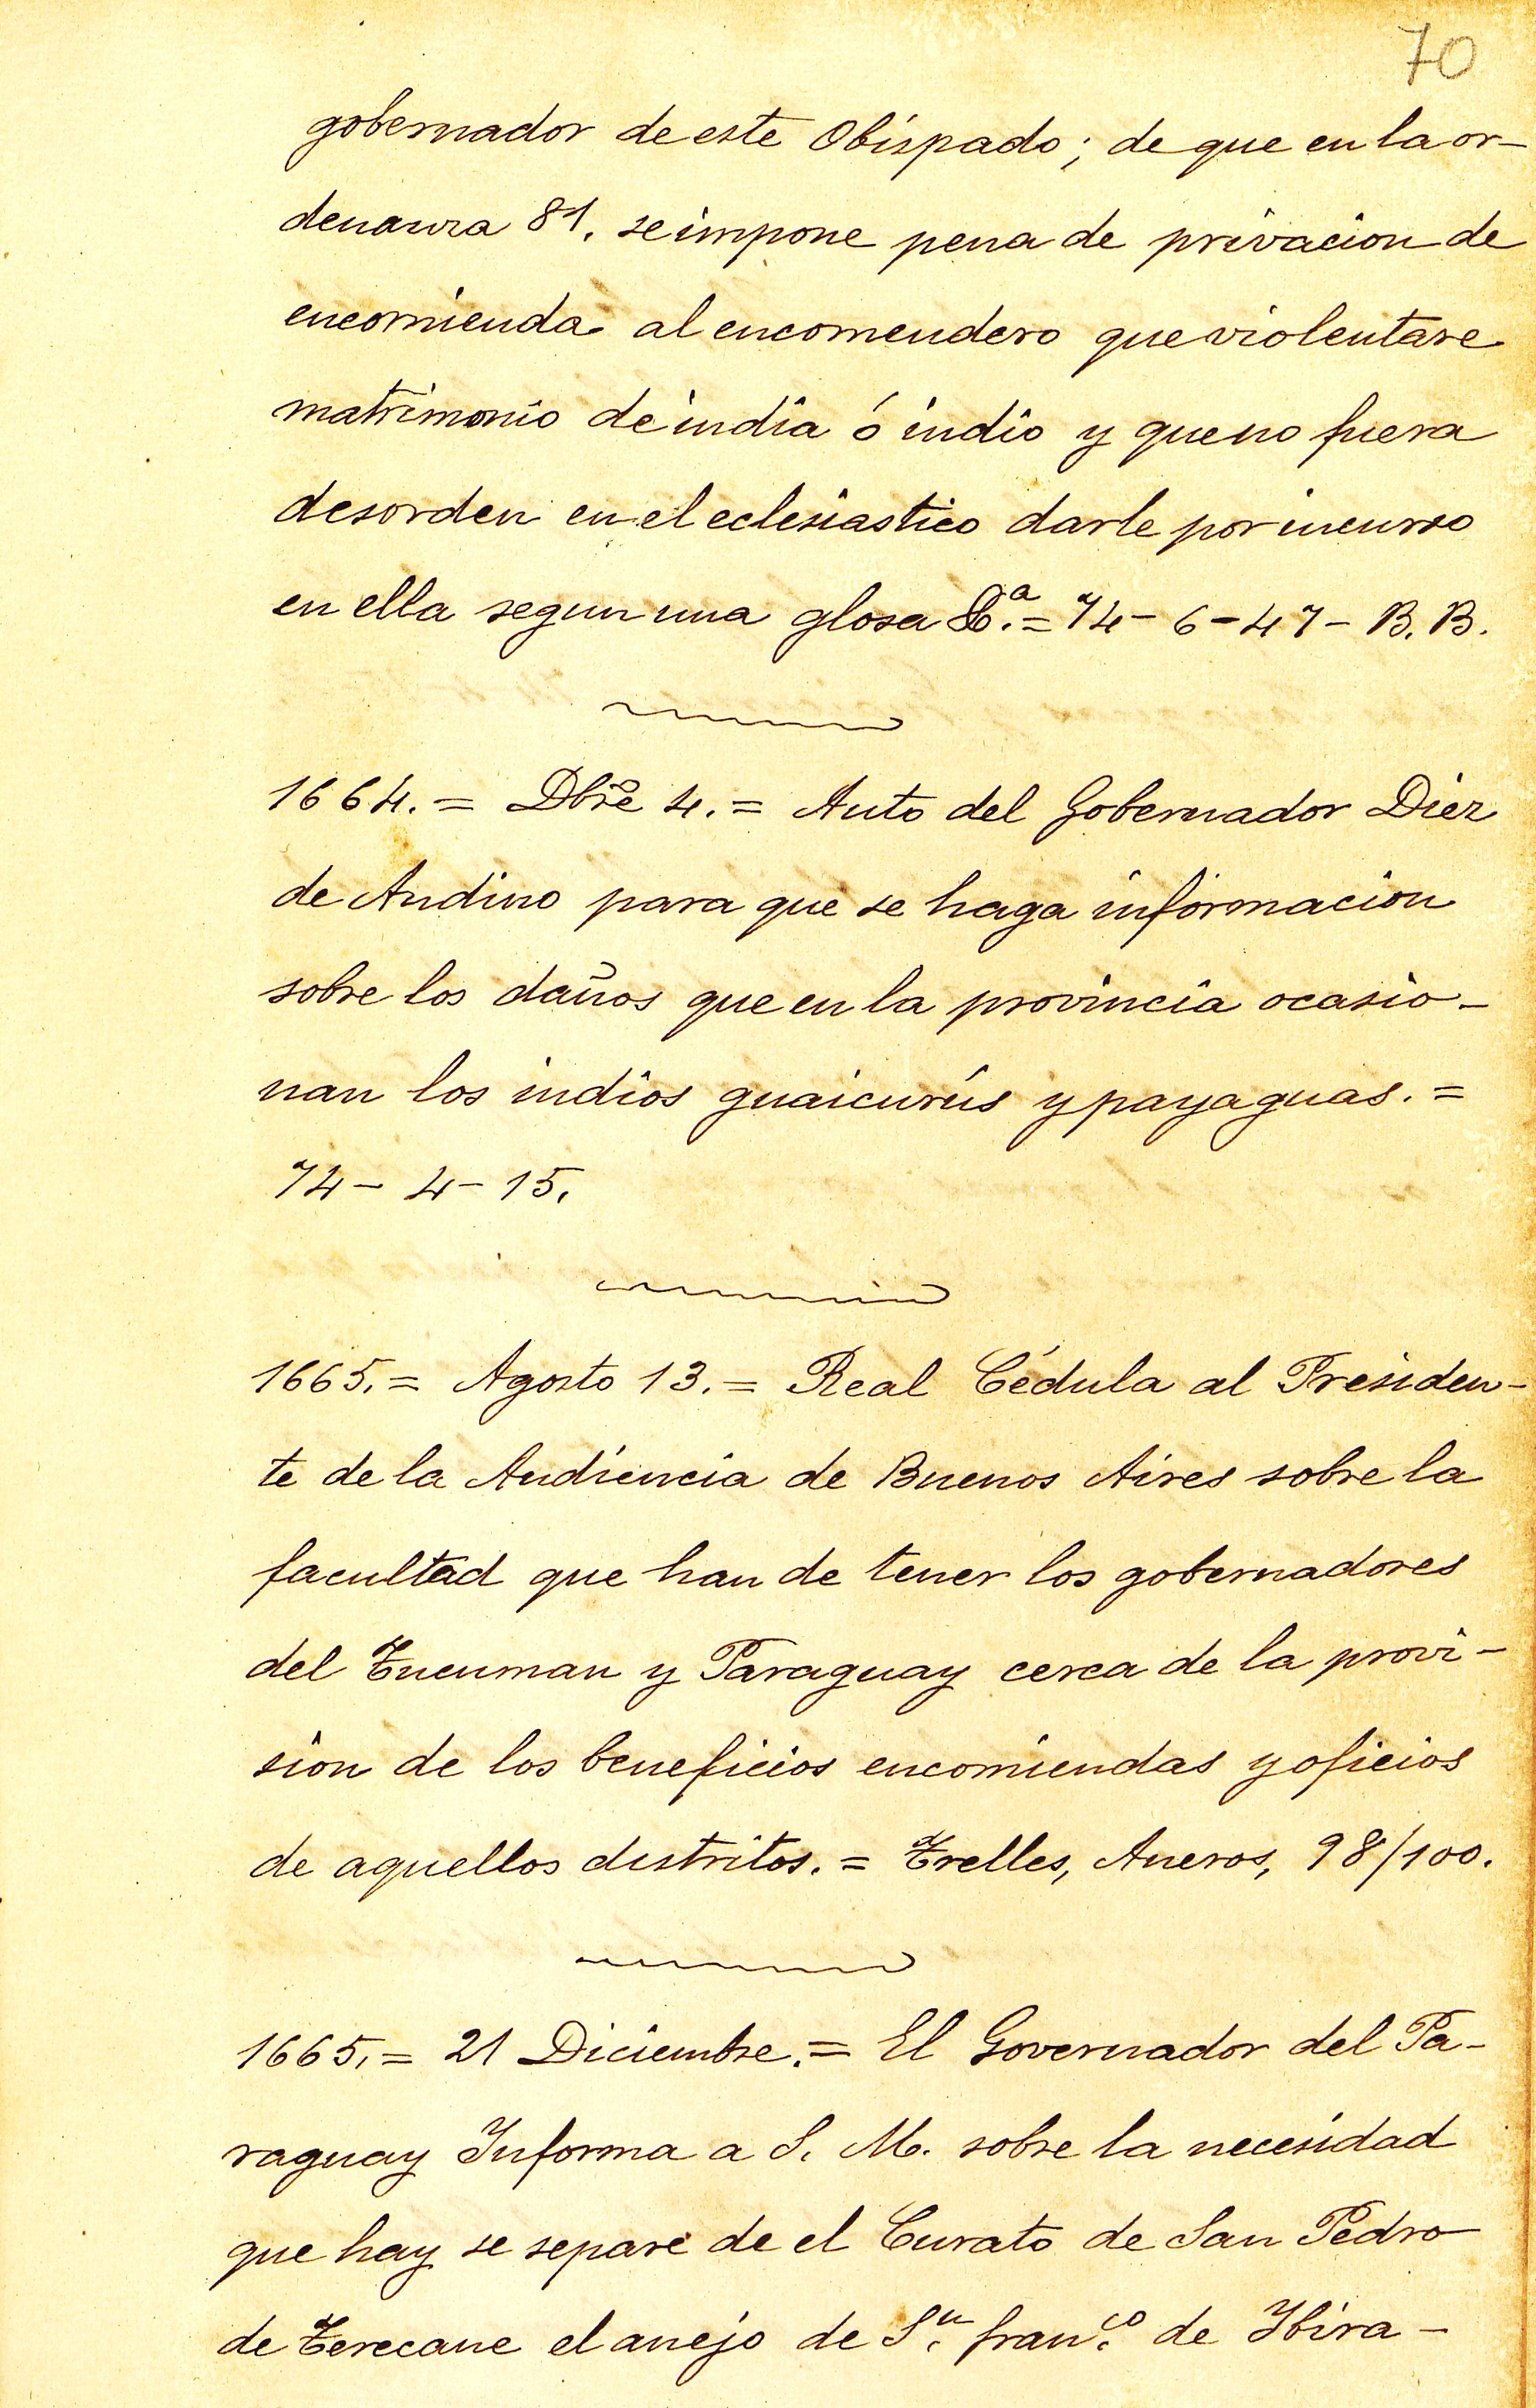 70
gobernador de este Obispado; de que en la or-
denanza 81. se impone pena de privacion de
encomienda al encomendero que violentare
matrimonio de india ó indio y que no fuera
desorden en el eclesiastico darle por incurso
en ella segun una glosa &.ª = 74 - 6 - 47 - B. B.
1664. = Dbre 4. = Auto del Gobernador Diez
de Andino para que se haga informacion
sobre los daños que en la provincia ocasio-
nan los indios guaicurús y payaguas. =
74 - 4 - 15.
1665. = Agosto 13. = Real Cédula al Presiden-
te de la Audiencia de Buenos Aires sobre la
facultad que han de tener los gobernadores
del Tucuman y Paraguay cerca de la provi-
sion de los beneficios encomiendas y oficios
de aquellos distritos. = Trelles, Aneros, 98/100.
1665. = 21 Diciembre. = El Governador del Pa-
raguay Informa a S. M. sobre la necesidad
que hay se separe de el Curato de San Pedro
de Terecane el anejo de S.n fran.co de Ibira-